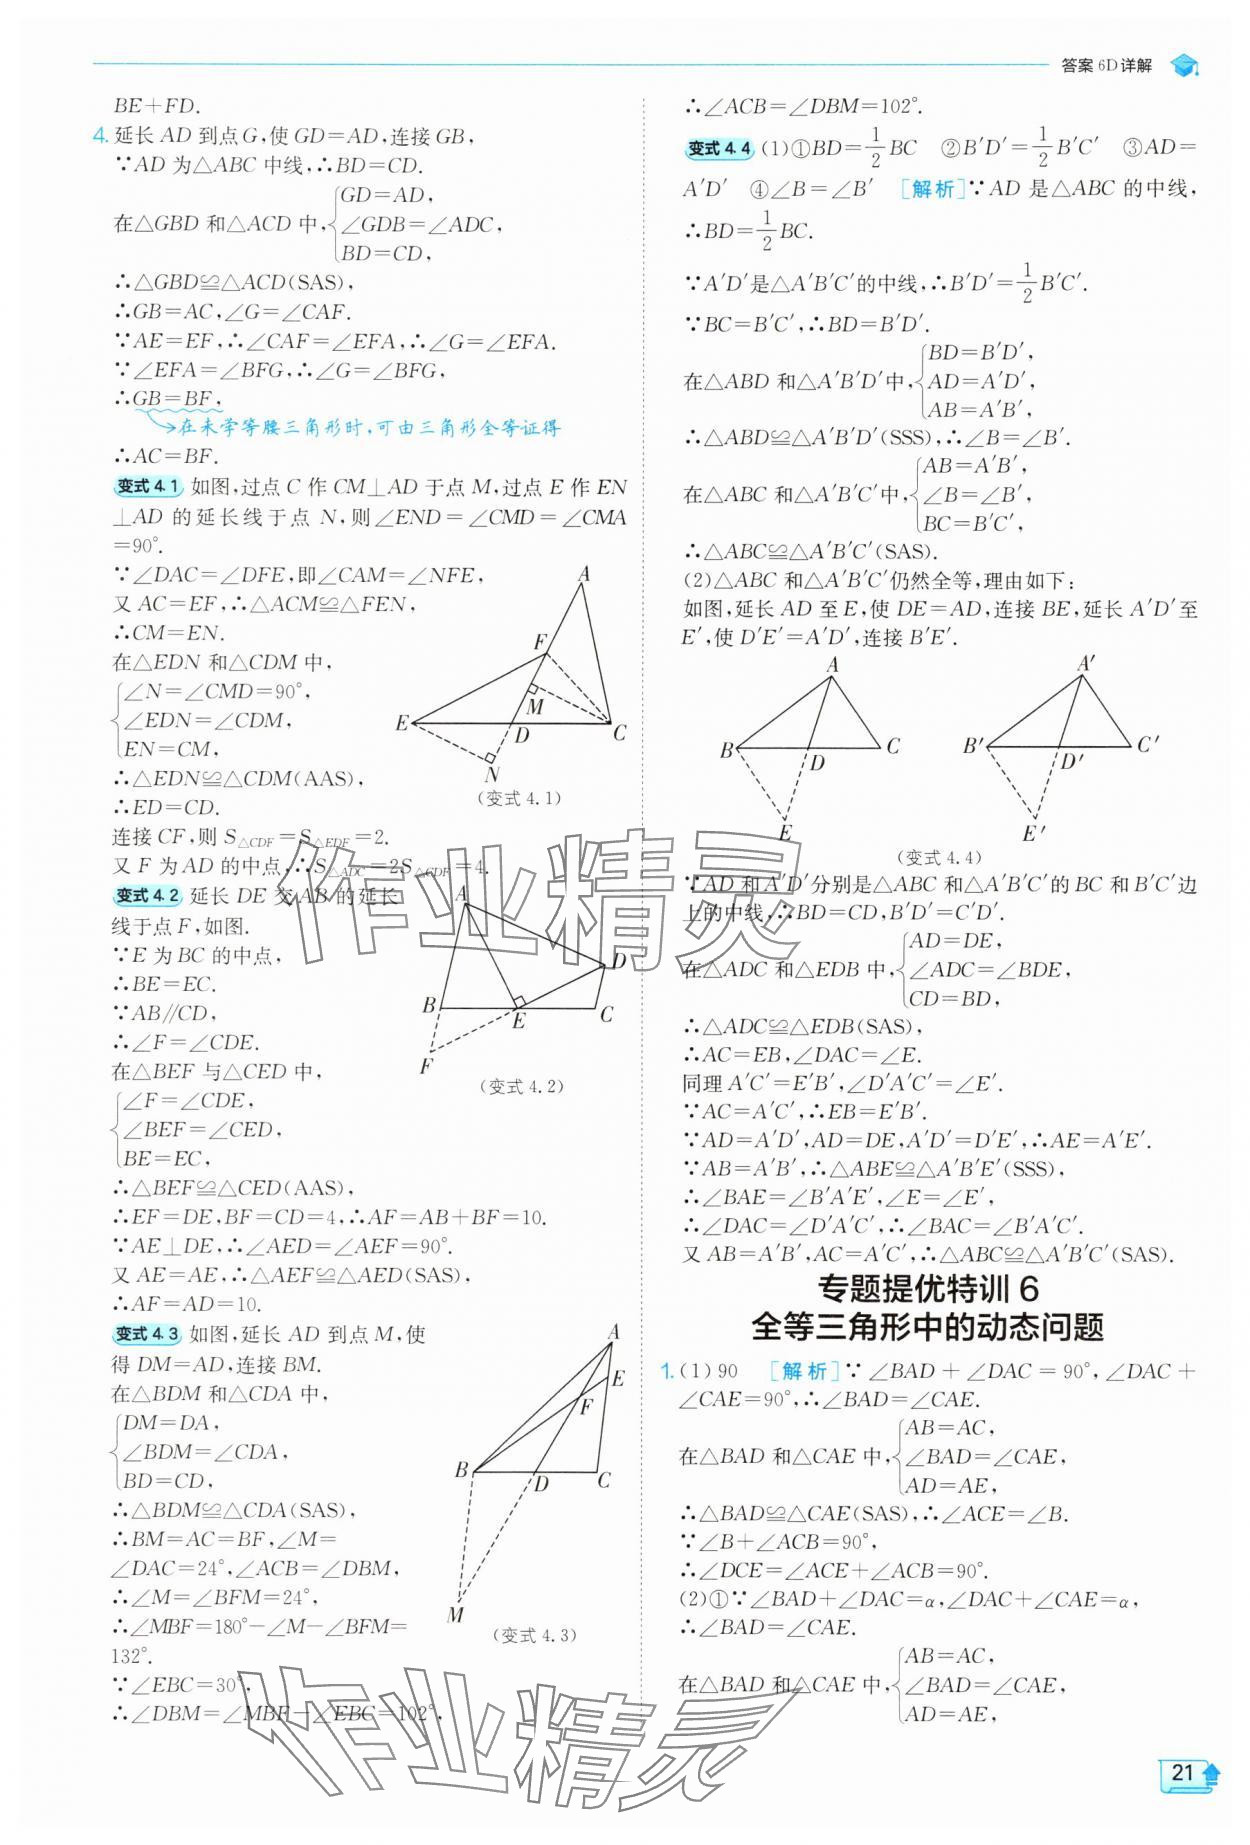 答案 6D 详解
BE+FD.
4. 延长 AD 到点 G,使 GD=AD,连接 GB,
∵AD 为△ABC 中线,∴BD=CD.
在△GBD 和△ACD 中,{GD=AD,
∠GDB=∠ADC,
BD=CD,
∴△GBD≌△ACD(SAS),
∴GB=AC,∠G=∠CAF.
∵AE=EF,∴∠CAF=∠EFA,∴∠G=∠EFA.
∵∠EFA=∠BFG,∴∠G=∠BFG,
∴GB=BF,
→在未学等腰三角形时,可由三角形全等证得
∴AC=BF.
变式 4.1 如图,过点 C 作 CM⊥AD 于点 M,过点 E 作 EN
⊥AD 的延长线于点 N,则∠END=∠CMD=∠CMA
=90°.
∵∠DAC=∠DFE,即∠CAM=∠NFE,
又 AC=EF,∴△ACM≌△FEN,
∴CM=EN.
在△EDN 和△CDM 中,
{∠N=∠CMD=90°,
∠EDN=∠CDM,
EN=CM,
∴△EDN≌△CDM(AAS),
∴ED=CD.
A
F
M
E
D
C
N
(变式 4.1)
连接 CF,则 S△CDF=S△EDF=2.
又 F 为 AD 的中点,∴S△ADC=2S△CDF=4.
变式 4.2 延长 DE 交 AB 的延长
线于点 F,如图.
∵E 为 BC 的中点,
∴BE=EC.
∵AB∥CD,
∴∠F=∠CDE.
在△BEF 与△CED 中,
{∠F=∠CDE,
∠BEF=∠CED,
BE=EC,
A
D
B
E
C
F
(变式 4.2)
∴△BEF≌△CED(AAS),
∴EF=DE,BF=CD=4,∴AF=AB+BF=10.
∵AE⊥DE,∴∠AED=∠AEF=90°.
又 AE=AE,∴△AEF≌△AED(SAS),
∴AF=AD=10.
变式 4.3 如图,延长 AD 到点 M,使
得 DM=AD,连接 BM.
在△BDM 和△CDA 中,
{DM=DA,
∠BDM=∠CDA,
BD=CD,
∴△BDM≌△CDA(SAS),
∴BM=AC=BF,∠M=
∠DAC=24°,∠ACB=∠DBM,
∴∠M=∠BFM=24°,
∴∠MBF=180°-∠M-∠BFM=
132°.
∵∠EBC=30°,
∴∠DBM=∠MBF-∠EBC=102°,
A
E
F
B
D
C
M
(变式 4.3)
∴∠ACB=∠DBM=102°.
变式 4.4 (1)①BD=1/2BC ②B′D′=1/2B′C′ ③AD=
A′D′ ④∠B=∠B′ [解析]∵AD 是△ABC 的中线,
∴BD=1/2BC.
∵A′D′是△A′B′C′的中线,∴B′D′=1/2B′C′.
∵BC=B′C′,∴BD=B′D′.
在△ABD 和△A′B′D′中,{BD=B′D′,
AD=A′D′,
AB=A′B′,
∴△ABD≌△A′B′D′(SSS),∴∠B=∠B′.
在△ABC 和△A′B′C′中,{AB=A′B′,
∠B=∠B′,
BC=B′C′,
∴△ABC≌△A′B′C′(SAS).
(2)△ABC 和△A′B′C′仍然全等,理由如下:
如图,延长 AD 至 E,使 DE=AD,连接 BE,延长 A′D′至
E′,使 D′E′=A′D′,连接 B′E′.
A
B
D
C
E
A′
B′
D′
C′
E′
(变式 4.4)
∵AD 和 A′D′分别是△ABC 和△A′B′C′的 BC 和 B′C′边
上的中线,∴BD=CD,B′D′=C′D′.
在△ADC 和△EDB 中,{AD=DE,
∠ADC=∠BDE,
CD=BD,
∴△ADC≌△EDB(SAS),
∴AC=EB,∠DAC=∠E.
同理 A′C′=E′B′,∠D′A′C′=∠E′.
∵AC=A′C′,∴EB=E′B′.
∵AD=A′D′,AD=DE,A′D′=D′E′,∴AE=A′E′.
∵AB=A′B′,∴△ABE≌△A′B′E′(SSS),
∴∠BAE=∠B′A′E′,∠E=∠E′,
∴∠DAC=∠D′A′C′,∴∠BAC=∠B′A′C′.
又 AB=A′B′,AC=A′C′,∴△ABC≌△A′B′C′(SAS).
专题提优特训 6
全等三角形中的动态问题
1. (1) 90 [解析]∵∠BAD+∠DAC=90°,∠DAC+
∠CAE=90°,∴∠BAD=∠CAE.
在△BAD 和△CAE 中,{AB=AC,
∠BAD=∠CAE,
AD=AE,
∴△BAD≌△CAE(SAS),∴∠ACE=∠B.
∵∠B+∠ACB=90°,
∴∠DCE=∠ACE+∠ACB=90°.
(2)①∵∠BAD+∠DAC=α,∠DAC+∠CAE=α,
∴∠BAD=∠CAE.
在△BAD 和△CAE 中,{AB=AC,
∠BAD=∠CAE,
AD=AE,
21
作业精灵
作业精灵